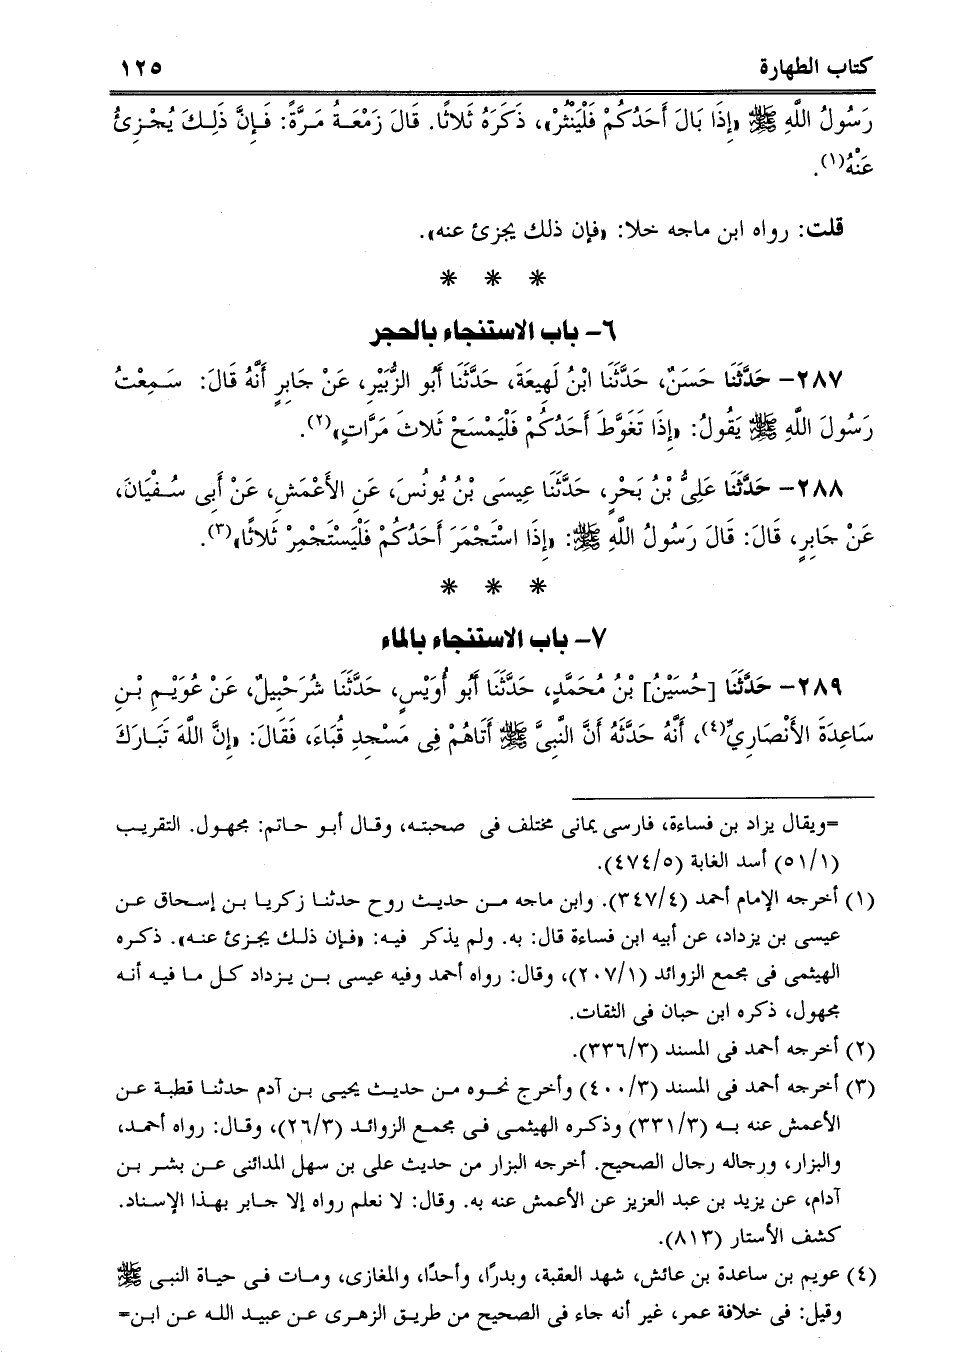 كتاب الطهارة ١٢٥
رَسُولُ اللَّهِ ﷺ «إِذَا بَالَ أَحَدُكُمْ فَلْيَنْثُرْ»، ذَكَرَهُ ثَلاثًا. قَالَ زَمْعَةُ مَرَّةً: فَإِنَّ ذَلِكَ يُجْزِئُ
عَنْهُ(١).
قلت: رواه ابن ماجه خلا: «فإن ذلك يجزئ عنه».
* * *
٦- باب الاستنجاء بالحجر
٢٨٧- حَدَّثَنَا حَسَنٌ، حَدَّثَنَا ابْنُ لَهِيعَةَ، حَدَّثَنَا أَبُو الزُّبَيْرِ، عَنْ جَابِرٍ أَنَّهُ قَالَ: سَمِعْتُ
رَسُولَ اللَّهِ ﷺ يَقُولُ: «إِذَا تَغَوَّطَ أَحَدُكُمْ فَلْيَمْسَحْ ثَلاثَ مَرَّاتٍ»(٢).
٢٨٨- حَدَّثَنَا عَلِىُّ بْنُ بَحْرٍ، حَدَّثَنَا عِيسَى بْنُ يُونُسَ، عَنِ الأَعْمَشِ، عَنْ أَبِى سُفْيَانَ،
عَنْ جَابِرٍ، قَالَ: قَالَ رَسُولُ اللَّهِ ﷺ: «إِذَا اسْتَجْمَرَ أَحَدُكُمْ فَلْيَسْتَجْمِرْ ثَلاثًا»(٣).
* * *
٧- باب الاستنجاء بالماء
٢٨٩- حَدَّثَنَا [حُسَيْنُ] بْنُ مُحَمَّدٍ، حَدَّثَنَا أَبُو أُوَيْسٍ، حَدَّثَنَا شُرَحْبِيلُ، عَنْ عُوَيْمِ بْنِ
سَاعِدَةَ الأَنْصَارِيِّ(٤)، أَنَّهُ حَدَّثَهُ أَنَّ النَّبِىَّ ﷺ أَتَاهُمْ فِى مَسْجِدِ قُبَاءَ، فَقَالَ: «إِنَّ اللَّهَ تَبَارَكَ
=ويقال يزاد بن فساءة، فارسى يمانى مختلف فى صحبته، وقال أبو حاتم: مجهول. التقريب
(٥١/١) أسد الغابة (٤٧٤/٥).
(١) أخرجه الإمام أحمد (٣٤٧/٤). وابن ماجه من حديث روح حدثنا زكريا بن إسحاق عن
عيسى بن يزداد، عن أبيه ابن فساءة قال: به. ولم يذكر فيه: «فإن ذلك يجزئ عنه». ذكره
الهيثمى فى مجمع الزوائد (٢٠٧/١)، وقال: رواه أحمد وفيه عيسى بن يزداد كل ما فيه أنه
مجهول، ذكره ابن حبان فى الثقات.
(٢) أخرجه أحمد فى المسند (٣٣٦/٣).
(٣) أخرجه أحمد فى المسند (٤٠٠/٣) وأخرج نحوه من حديث يحيى بن آدم حدثنا قطبة عن
الأعمش عنه به (٣٣١/٣) وذكره الهيثمى فى مجمع الزوائد (٢٦/٣)، وقال: رواه أحمد،
والبزار، ورجاله رجال الصحيح. أخرجه البزار من حديث على بن سهل المدائنى عن بشر بن
آدام، عن يزيد بن عبد العزيز عن الأعمش عنه به. وقال: لا نعلم رواه إلا جابر بهذا الإسناد.
كشف الأستار (٨١٣).
(٤) عويم بن ساعدة بن عائش، شهد العقبة، وبدرًا، وأحدًا، والمغازى، ومات فى حياة النبى ﷺ
وقيل: فى خلافة عمر، غير أنه جاء فى الصحيح من طريق الزهرى عن عبيد الله عن ابن=